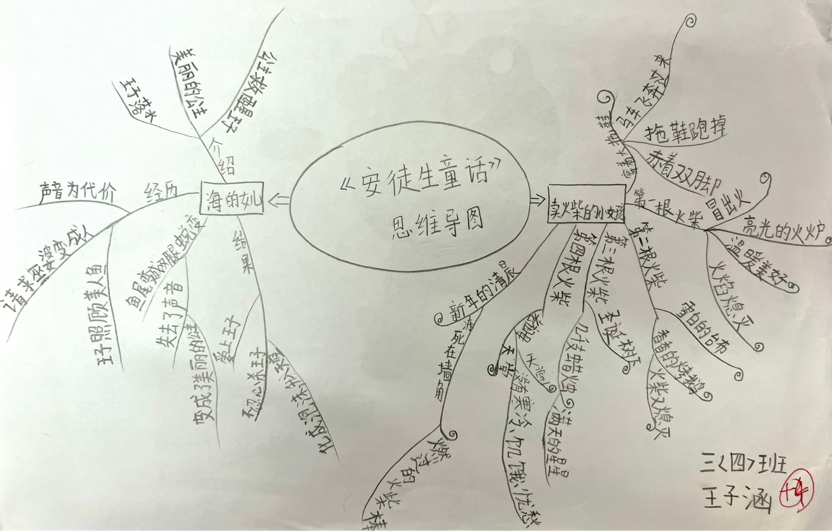 《安徒生童话》
思维导图
海的女儿
介绍
王子落水
美丽的公主
公主救醒王子
经历
声音为代价
请求巫婆变成人
王子照顾美人鱼
蜕变
鱼尾变成
失去了声音
变成了美丽的
结果
爱上王子
不忍心杀王子
化成泡沫
卖火柴的小女孩
马车飞奔过来
拖鞋跑掉
赤着双脚
第一根火柴
冒出火
亮光的火炉
温暖美好
火焰熄灭
第二根火柴
雪白的台布
香香的烤鹅
火柴又熄灭
第三根火柴
圣诞树下
几支蜡烛
满天的星星
第四根火柴
天堂
没有寒冷、饥饿、忧愁
新年的清晨
冻死在墙角
燃过的
火柴棒
三〈四〉班
王子涵